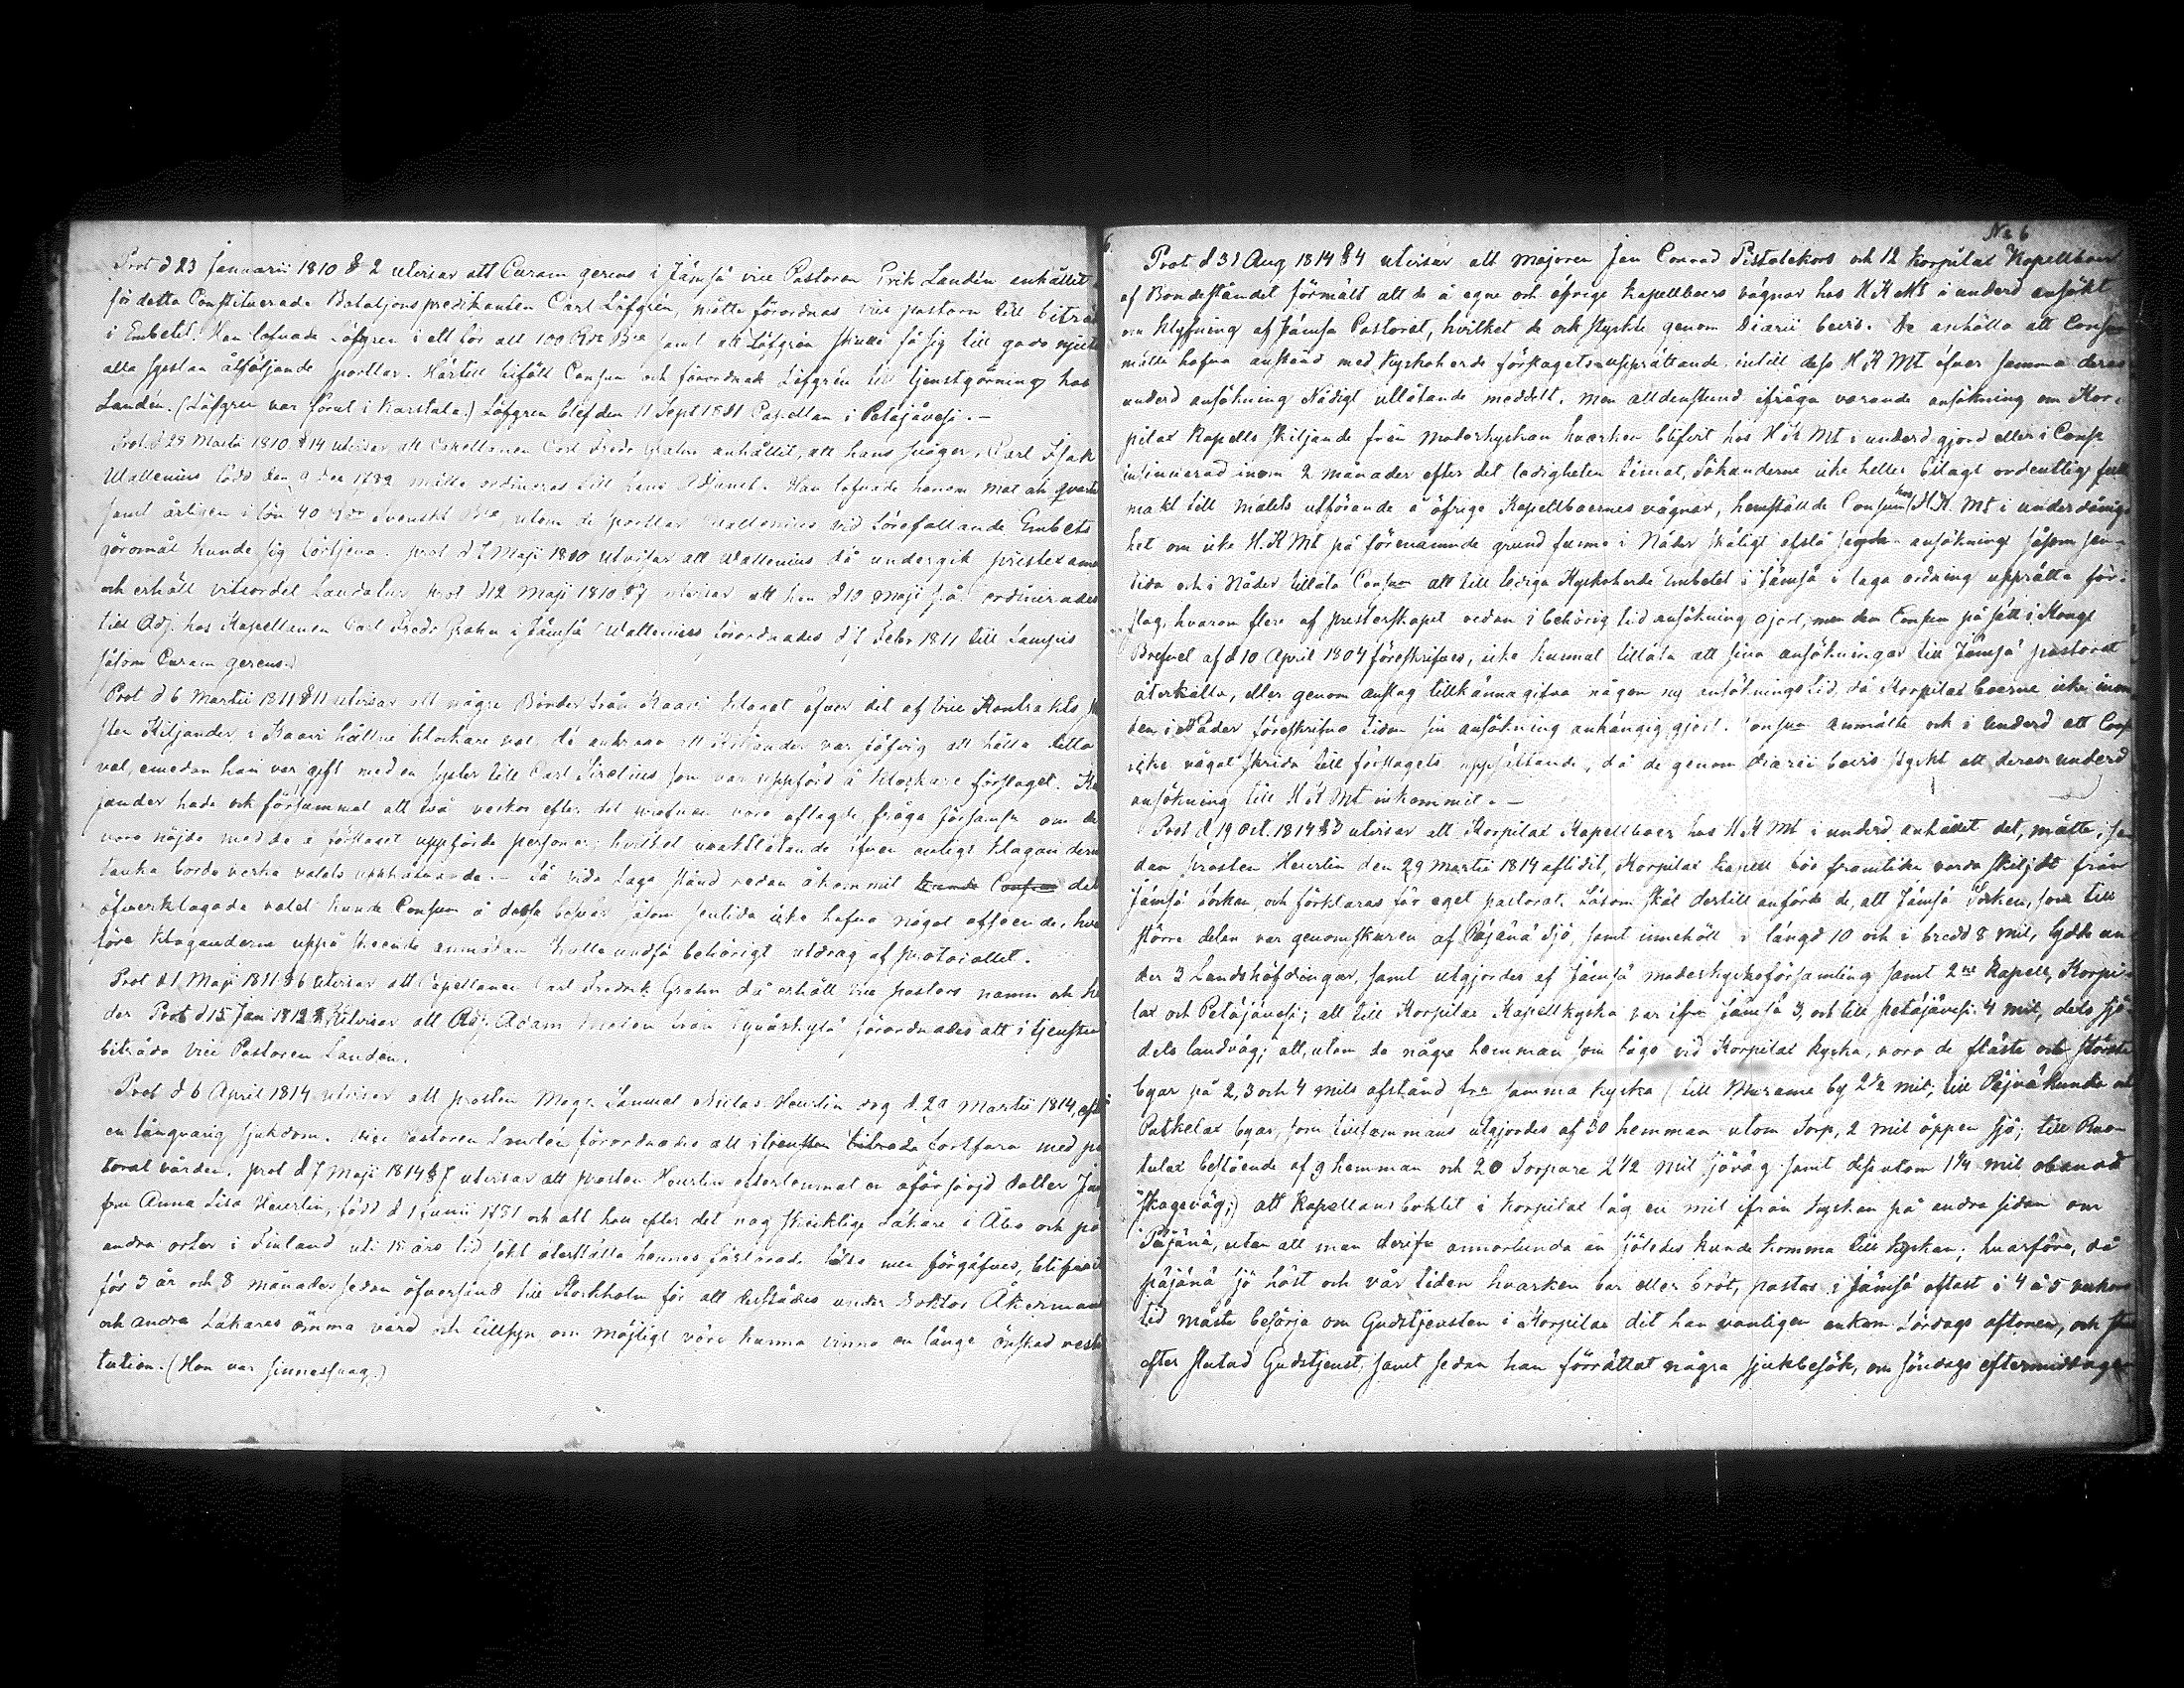 Prot d 23 Januarii 1810 § 2 utvisar att Curam gerens i Jämsä vice Pastoren Erik Landén anhållit
för detta Constituerade Bataljonspredikanten Carl Löfgrén, måtte förordnas vice pastorn till biträde
i Embetet. Han lofvade Löfgren i ett för allt 100 Rdr Bco samt att Löfgrén skulle få sig till godo njuta
alla sysslan åtföljande sportlar. Härtill biföll Consum och förordnade Löfgrén till tjenstgörning hos
Landén. (Löfgren var förut i Karstula.) Löfgren blef den 11 Sept 1811 Capellan i Petäjävesi. —
Prot d 28 Martii 1810 § 14 utvisar att Capellanen Carl Fredr Grahn anhållit, att hans svåger, Carl Isak
Wallenius född den 9 Dec 1782 måtte ordineras till hans Adjunct. Han lofvade honom mat och qvarter
samt årligen i lön 40 Rdr Svenskt Bco, utom de sportlar Wallenius vid förefallande Embets
göromål kunde sig förtjena. prot d 2 Maji 1810 utvisar att Wallenius då undergick prestexamen
och erhöll vitsordet Laudatur prot d 12 Maji 1810 § 7 utvisar att han d 10 Maji s.å. ordinerades
till Adj. hos Kapellanen Carl Fredr Grahn i Jämsä (Wallenius förordnades d 7 Febr 1811 till Lampis
såsom Curam gerens.)
Prot d 6 Martii 1811 § 11 utvisar att några Bönder från Kaavi klagat öfver det af vice Kontrakts
sten Kiljander i Kaavi hållne klockare val, de ansågo att Kiljander var jäfvig att hålla detta
val, emedan han var gift med en syster till Carl Sirelius som var uppförd å klockare förslaget. Kil
jander hade och försummat att två veckor efter det profven voro aflagde, fråga församl. om de
voro nöjde med de å förslaget uppförde personer; hvilket uraktlåtande äfven enligt klagandernes
tanka borde verka valets upphäfvande. — Så vida laga stånd redan åkommit kunde Consum det
öfverklagade valet kunde Consum å dessa besvär såsom sentida icke hafva något afseende, hvar
före klaganderne uppå skeende anmälan skulle undfå behörigt utdrag af protocollet.
Prot d 1 Maji 1811 § 6 utvisar att Capellanen Carl Fredrik Grahn då erhöll vice pastors namn och he
der Prot d 15 Jan 1812 § utvisar att Adj. Adam Molin från Jyväskylä förordnades att i tjensten
biträda vice Pastoren Landén.
Prot d 6 April 1814 utvisar att prosten Mag. Samuel Niclas Heurlin dog d 29 Martii 1814, efter
en långvarig sjukdom. Vice Pastoren Landén förordnades att i tjensten biträda fortfara med pas
toral vården. prot d 7 Maji 1814 § 7 utvisar att prosten Heurlin efterlemnat en oförsörjd dotter Jung
fru Anna Lisa Heurlin, född d 1 Junii 1781 och att han efter det nog skicklige Läkare i Åbo och på
andra orter i Finland uti 18 års tid sökt återställa hennes förlorade hälsa men förgäfves, blifvit
för 3 år och 8 månader sedan öfversänd till Stockholm för att derstädes under Doktor Åkermans
och andra Läkares ömma vård och tillsyn om möjligt vore kunna vinna en länge önskad resti
tution. (Hon var sinnessvag.)
6.
No 6
Prot d 31 Aug 1814 § 4 utvisar att Majoren Jan Conrad Pistolekors och 12 Korpilax Kapellboer
af Bondeståndet förmält att de å egne och öfrige Kapellboers vägnar hos H K Mt i underd ansökt
om klyfning af Jämsä Pastorat, hvilket de ock styrkte genom Diarii bevis. De anhöllo att Consum
måtte hafva anstånd med Kyrkoherde förslagets upprättande, intill dess H K Mt öfver samma deras
underd ansökning Nådigt utlåtande meddelt. Men alldenstund ifråga varande ansökning om Kor-
pilax Kapells skiljande från moderkyrkan hvarken blifvit hos H K Mt i underd gjord eller i Cons
insinuerad inom 2 månader efter det ledigheten timat, Sökanderne icke heller bilagt ordentlig full
makt till målets utförande å öfrige Kapellboernes vägnar, hemställde Consum hos H.K. Mt i underdånig-
het om icke H.K Mt på förenämnde grund funne i Nåder skäligt afslå sagde ansökning såsom sen-
tida och i Nåder tillåta Consum att till lediga Kyrkoherde Embetet i Jämsä i laga ordning upprätta för-
slag, hvarom flere af presterskapet redan i behörig tid ansökning gjort, men dem Consum på sätt i Kongl
Brefvet af d 10 April 1804 föreskrifves, icke kunnat tillåta att sina ansökningar till Jämsä pastorat
återkalla, eller genom anslag tillkännagifva någon ny ansökningstid, då Korpilax boerne icke inom
den i Nåder föreskrifne tiden sin ansökning anhängig gjort. Consum anmälte ock i underd att Cons
icke vågat skrida till förslagets upprättande, då de genom diarii bevis styrkt att deras underd
ansökning till H K Mt inkommit. —
Prot d 19 Oct. 1814 § 3 utvisar att Korpilax Kapellboer hos H K Mt i underd anhållit det, måtte, se-
dan prosten Heurlin den 29 Martii 1814 aflidit, Korpilax Kapell för framtiden varda skiljdt från
Jämsä Socken, och förklaras för eget pastorat. Såsom skäl dertill anförde de, att Jämsä Socken, som till
större delen var genomskuren af Päjänä sjö, samt innehöll i längd 10 och i bredd 8 mil, lydde un-
der 3 Landshöfdingar, samt utgjordes af Jämsä moderkyrkoförsamling samt 2ne Kapell, Korpi-
lax och Petäjävesi; att till Korpilax Kapellkyrka var ifrn Jämsä 3, och till petäjävesi 4 mil, dels sjö-
dels landväg; att, utom de några hemman som lågo vid Korpilax kyrka, voro de fläste och största
byar på 2, 3 och 4 mils afstånd frn samma kyrka (till Muurame by 2½ mil; till Päjvä kunda och
Putkelax byar, som tillsammans utgjordes af 30 hemman utom Torp, 2 mil öppen sjö; till Ruo-
tulax bestående af 9 hemman och 20 Torpare 2½ mil sjöväg samt dessutom 1¼ mil obanad
skogsväg;) att Kapellansbohlet i Korpilax låg en mil ifrån kyrkan på andra sidan om
Päjänä, utan att man derifrn annorlunda än sjöledes kunde komma till kyrkan; hvarföre, då
päjänä sjö höst och vår tiden hvarken bar eller bröt, pastor i Jämsä oftast i 4 à 5 veckors
tid måste besörja om Gudstjensten i Korpilax dit han vanligen ankom Lördags aftonen, och
efter slutad Gudstjenst, samt sedan han förrättat några sjukbesök, om söndags eftermiddagen